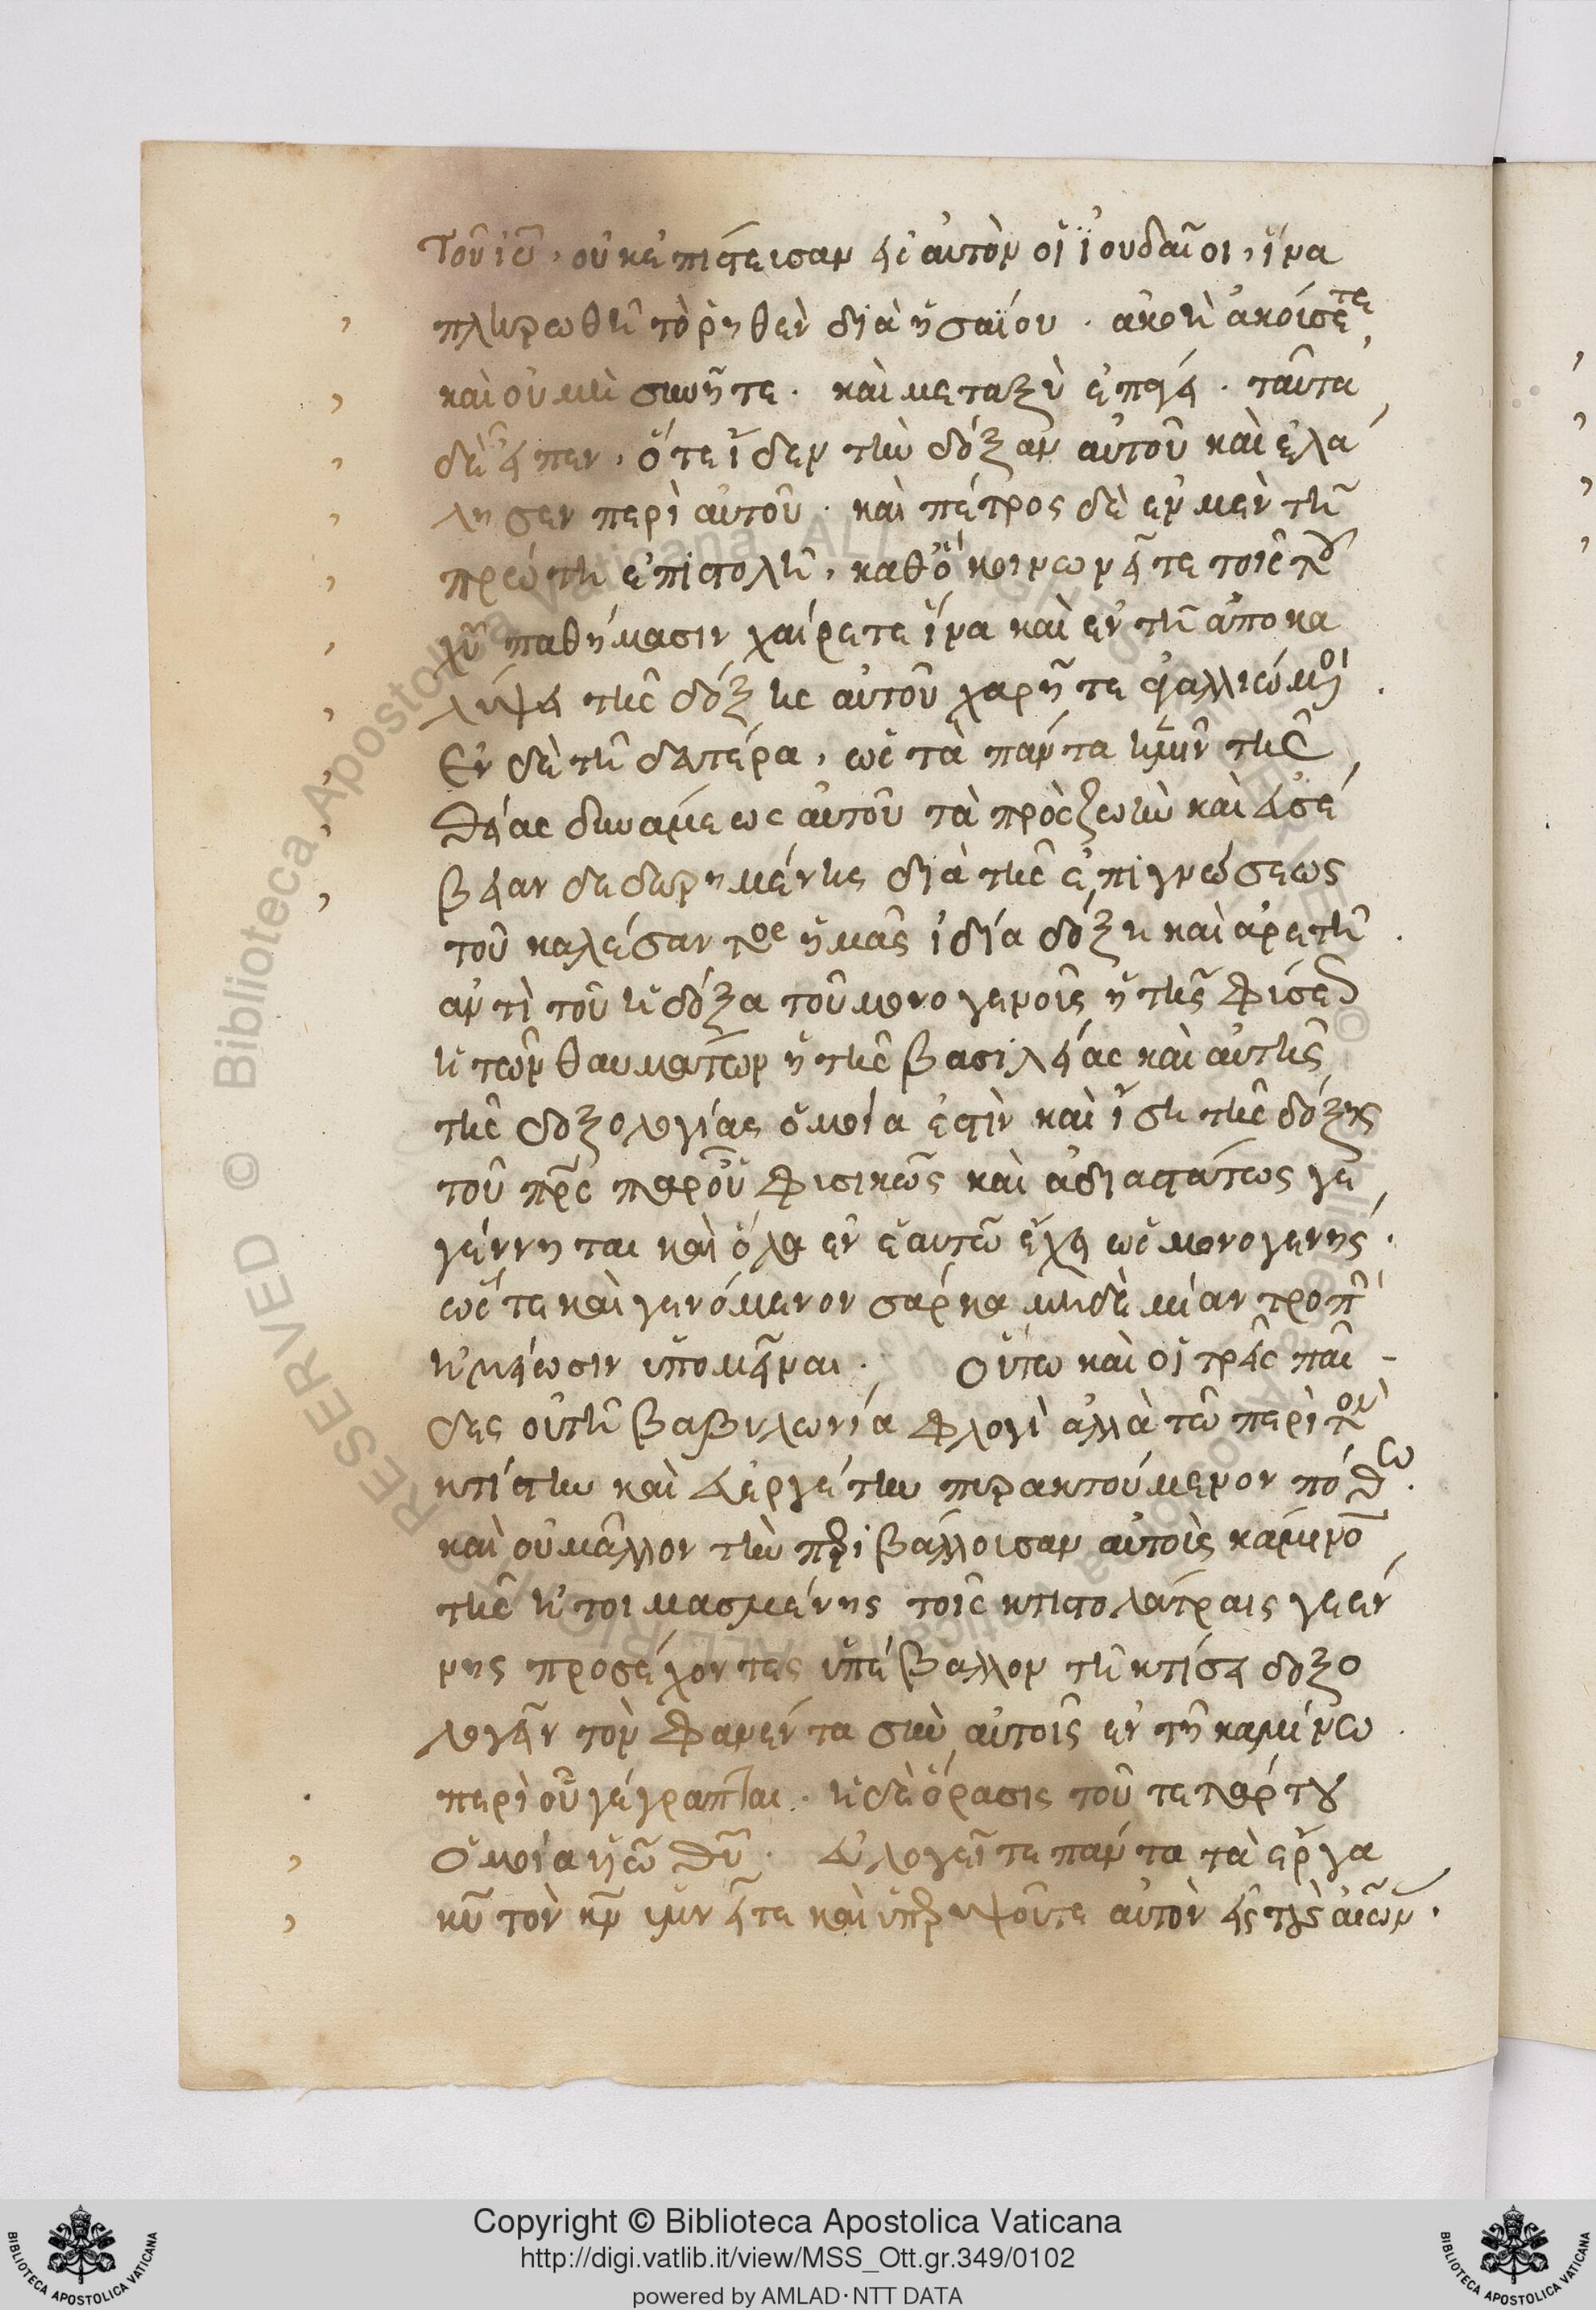 τοῦ ἰῦ, οὐκ ἐπίστεισαν εἰς αὐτὸν οἱ ἰουδαῖοι, ἵνα
πληρωθῇ τὸ ῥηθὲν διὰ ἡσαΐου. ἀκοῇ ἀκούσετε
καὶ οὐ μὴ συνῆτε. καὶ μεταξὺ ἐπάγει. ταῦτα
δὲ εἶπεν, ὅτε ἶδεν τὴν δόξαν αὐτοῦ καὶ ἐλά
λησεν περὶ αὐτοῦ. καὶ πέτρος δὲ ἐν μὲν τῇ
πρώτη ἐπιστολῇ, καθὸ κοινωνεῖτε τοῖς τοῦ
χῦ παθήμασιν χαίρετε ἵνα καὶ ἐν τῇ ἀποκα
λύψει τῆς δόξης αὐτοῦ χαρῆτε ἀγαλλιώμενοι.
Ἐν δὲ τῇ δευτέρα, ὡς τὰ πάντα ἡμῖν τῆς
θείας δυνάμεως αὐτοῦ τὰ πρὸς ζωὴν καὶ εὐσέ
βειαν δεδωρημένης διὰ τῆς ἐπιγνώσεως
τοῦ καλέσαντος ἡμᾶς ἰδία δόξη καὶ ἀρετῇ.
αντὶ τοῦ ἡ δόξα τοῦ μονογενοῦς ἢ τῆς φύσεως
ἢ τῶν θαυμάτων ἢ τῆς βασιλείας καὶ αὐτῆς
τῆς δοξολογίας ὁμοία ἐστὶν καὶ ἴση τῆς δόξης
τοῦ πρς παρ' οὗ φυσικῶς καὶ ἀδιαστάτως γε
γέννηται καὶ ὅλα ἐν ἑαυτῶ ἔχει ὡς μονογενής.
ὥς τε καὶ γενόμενον σάρκα μηδὲ μίαν τροπὴν
ἢ μείωσιν ὑπομεῖναι. Οὕτω καὶ οἱ τρεῖς παῖ-
δες οὐ τῇ βαβυλωνία φλογὶ ἀλλὰ τῶ περὶ τὸν
κτίστην καὶ εὐεργέτην πυρακτούμενον πόθω.
καὶ οὐ μᾶλλον τὴν περιβάλλουσαν αὐτοῖς κάμινον
τῆς ἡτοιμασμένης τοῖς κτιστολάτραις γεέν
νης προσέχοντες ὑπέβαλλον τῇ κτίσει δοξο
λογεῖν τὸν φανέντα σὺν αὐτοῖς ἐν τῇ καμίνω.
περὶ οὗ γέγραπται. ἡ δὲ ὅρασις τοῦ τετάρτου
ὁμοία ὑιῶ θῦ. εὐλογεῖτε πάντα τὰ ἔργα
κῦ τὸν κν ὑμνεῖτε καὶ ὑπερυψοῦτε αὐτὸν εἰς τοὺς αἰῶνας.
RESERVED © Biblioteca Apostolica Vaticana ALL RIGHTS RESERVED ©
Copyright © Biblioteca Apostolica Vaticana
http://digi.vatlib.it/view/MSS_Ott.gr.349/0102
powered by AMLAD·NTT DATA
BIBLIOTECA APOSTOLICA VATICANA
BIBLIOTECA APOSTOLICA VATICANA